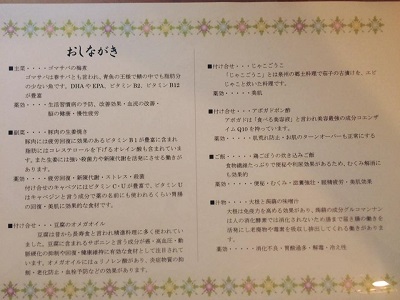 おしながき
■主菜・・・・ゴマサバの麹煮
ゴマサバは春サバとも言われ、青魚の王様で鯖の中でも脂肪分
の少ない魚です。DHAやEPA、ビタミンB2、ビタミンB12
が豊富
薬効・・・・生活習慣病の予防、改善効果・血流の改善、
脳の健康・慢性疲労
■副菜・・・・豚肉の生姜焼き
豚肉には疲労回復に効果のあるビタミンB1が豊富に含まれ
脂肪にはコレステロールを下げるオレイン酸も含まれていま
す。また生姜には強い殺菌力や新陳代謝を活発にさせる働きが
あります。
薬効・・・・疲労回復・新陳代謝・ストレス・殺菌
付け合せのキャベツにはビタミンC・Uが豊富で、ビタミンU
はキャベジンと言う成分で薬の名前にも使われるくらい胃腸
の回復・美肌に効果的な食材です。
■付け合せ・・・・豆腐のオメガオイル
豆腐は昔から長寿食と言われ健康料理に多く使われてい
ました。豆腐に含まれるサポニンと言う成分が癌・高血圧・動
脈硬化の抑制や回復・健康維持に有効な食材として注目されて
います。オメガオイルにはαリノレン酸があり、炎症物質の抑
制・老化防止・血栓予防などの効果があります。
■付け合せ・・・・じゃこごうこ
「じゃこごうこ」とは泉州の郷土料理で茄子の古漬けを、エビ
じゃこと炊いた料理です。
薬効・・・・美肌
■付け合せ・・・・アボガドポン酢
アボガドは「食べる美容液」と言われ美容最強の成分コエンザ
イムQ10を持っています。
薬効・・・・肌荒れ防止・お肌のターンオーバーも正常にする
■ご飯・・・・鶏ごぼうの炊き込みご飯
食物繊維たっぷりで便秘や利尿効果があるため、むくみ解消に
も効果的
薬効・・・・便秘・むくみ・滋養強壮・眼精疲労・美肌効果
■汁物・・・・大根と蒟蒻の味噌汁
大根は免疫力を高める効果があり、蒟蒻の成分グルコマンナン
は人の消化酵素では消化されないため速やかに腸の働きを
活発にし老廃物や糖質を吸収し排出してくれる働きがありま
す。
薬効・・・・消化不良・胃酸過多・解毒・冷え性